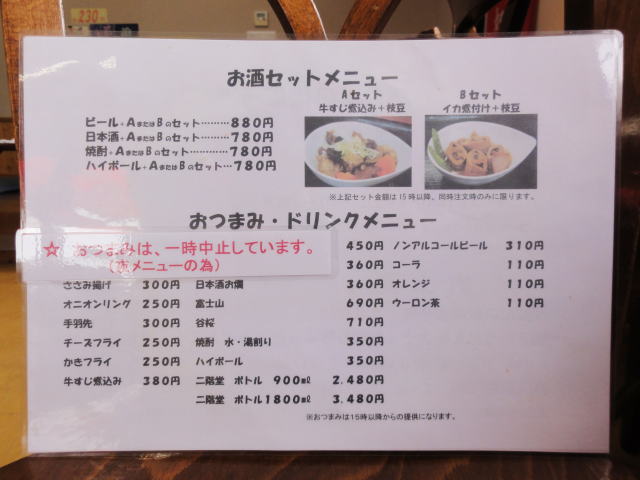 230円
お酒セットメニュー
ビール+AまたはBのセット………880円
日本酒+AまたはBのセット………780円
焼酎+AまたはBのセット…………780円
ハイボール+AまたはBのセット…780円
Aセット
牛すじ煮込み+枝豆
Bセット
イカ煮付け+枝豆
※上記セット金額は15時以降、同時注文時のみに限ります。
おつまみ・ドリンクメニュー
☆ おつまみは、一時中止しています。
(夜メニューの為)
ささみ揚げ 300円
オニオンリング 250円
手羽先 300円
チーズフライ 250円
かきフライ 250円
牛すじ煮込み 380円
450円
360円
日本酒お燗 360円
富士山 690円
谷桜 710円
焼酎 水・湯割り 350円
ハイボール 350円
二階堂 ボトル 900㎖ 2.480円
二階堂 ボトル1800㎖ 3.480円
ノンアルコールビール 310円
コーラ 110円
オレンジ 110円
ウーロン茶 110円
※おつまみは15時以降からの提供になります。